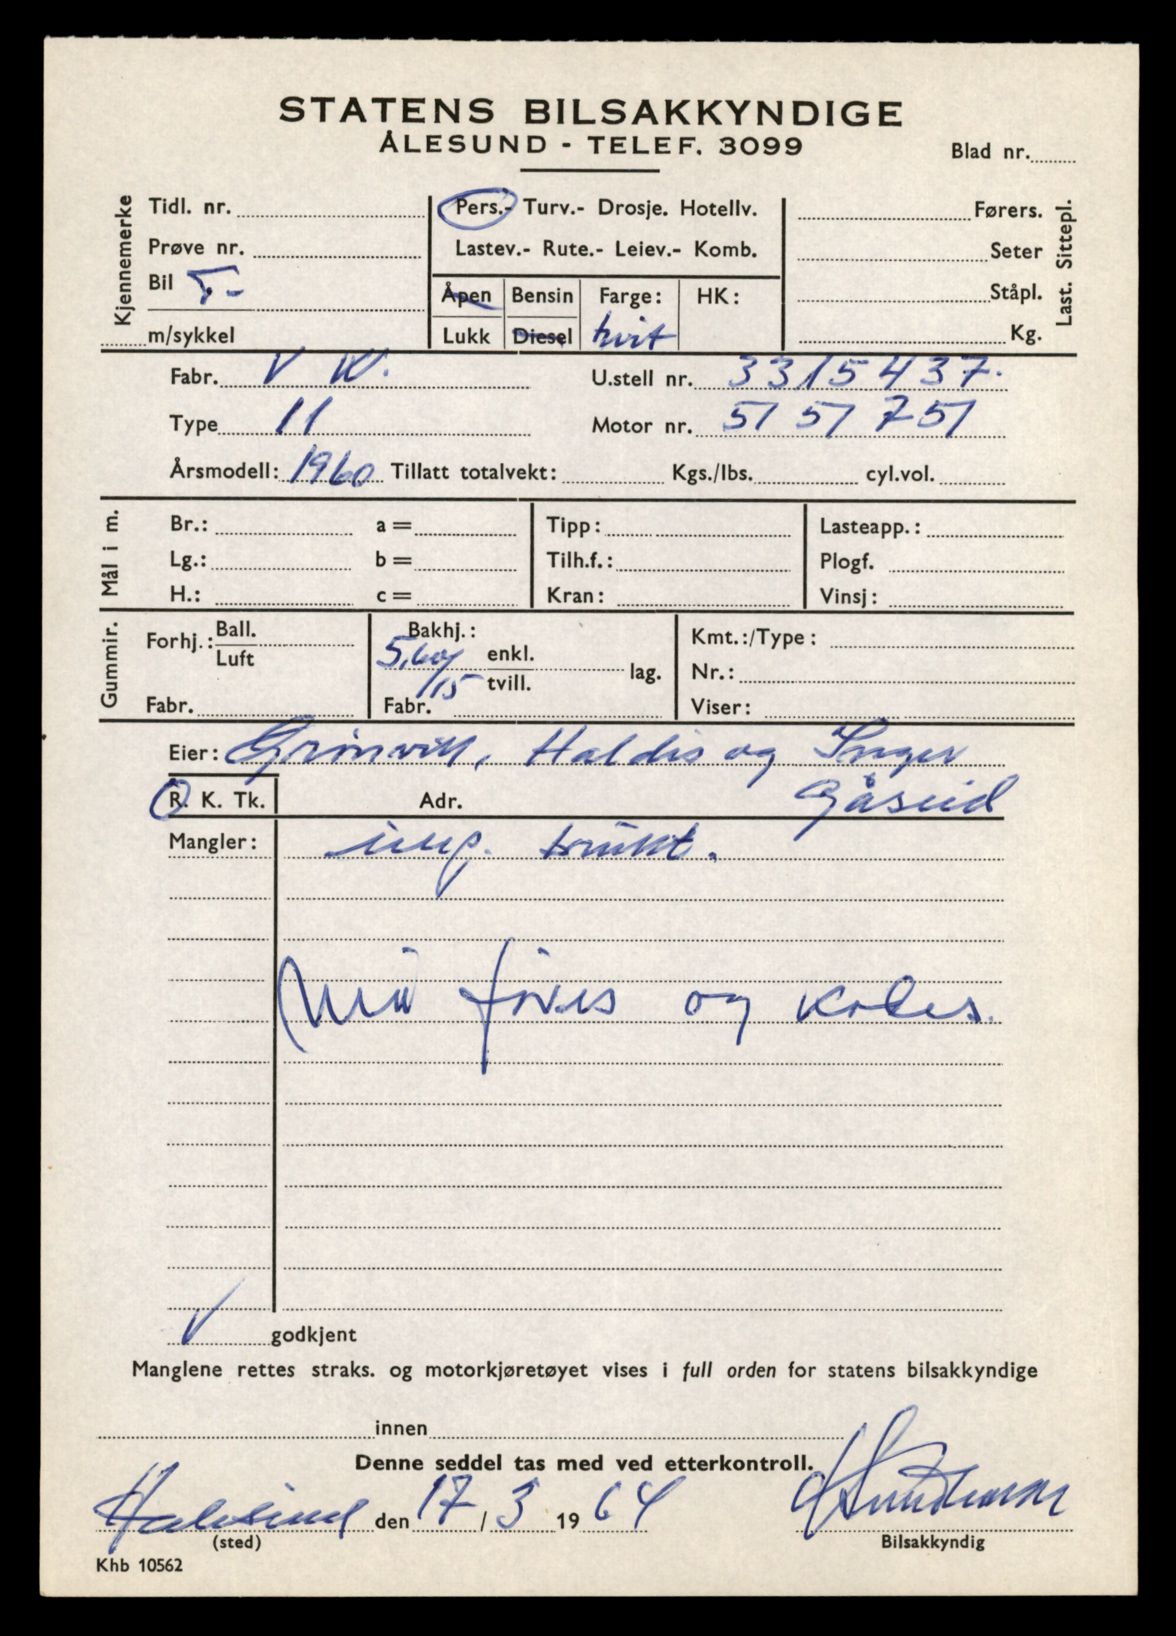 STATENS BILSAKKYNDIGE
ÅLESUND - TELEF. 3099
Blad nr.
Kjennemerke
Tidl. nr.
Prøve nr.
Bil T-
m/sykkel
Pers.- Turv.- Drosje. Hotellv.
Lastev.- Rute.- Leiev.- Komb.
Åpen Bensin Farge: HK:
Lukk Diesel hvit
Førers.
Seter
Ståpl.
Kg.
Last. Sittepl.
Fabr. V W. U.stell nr. 3315437.
Type 11 Motor nr. 5157751
Årsmodell: 1960 Tillatt totalvekt: Kgs./lbs. cyl.vol.
Mål i m.
Br.: a = Tipp: Lasteapp.:
Lg.: b = Tilh.f.: Plogf.
H.: c = Kran: Vinsj:
Gummir.
Forhj.: Ball. Luft
Fabr.
Bakhj.:
5,60/15 enkl. tvill. lag.
Fabr.
Kmt.:/Type:
Nr.:
Viser:
Eier: Grønvik, Haldis og Inger
R. K. Tk. Adr. Gåseid
Mangler: imp. brukt.
Må føres og
godkjent
Manglene rettes straks. og motorkjøretøyet vises i full orden for statens bilsakkyndige
innen
Denne seddel tas med ved etterkontroll.
Aalesund den 17/3 1964
(sted)
Bilsakkyndig
Khb 10562